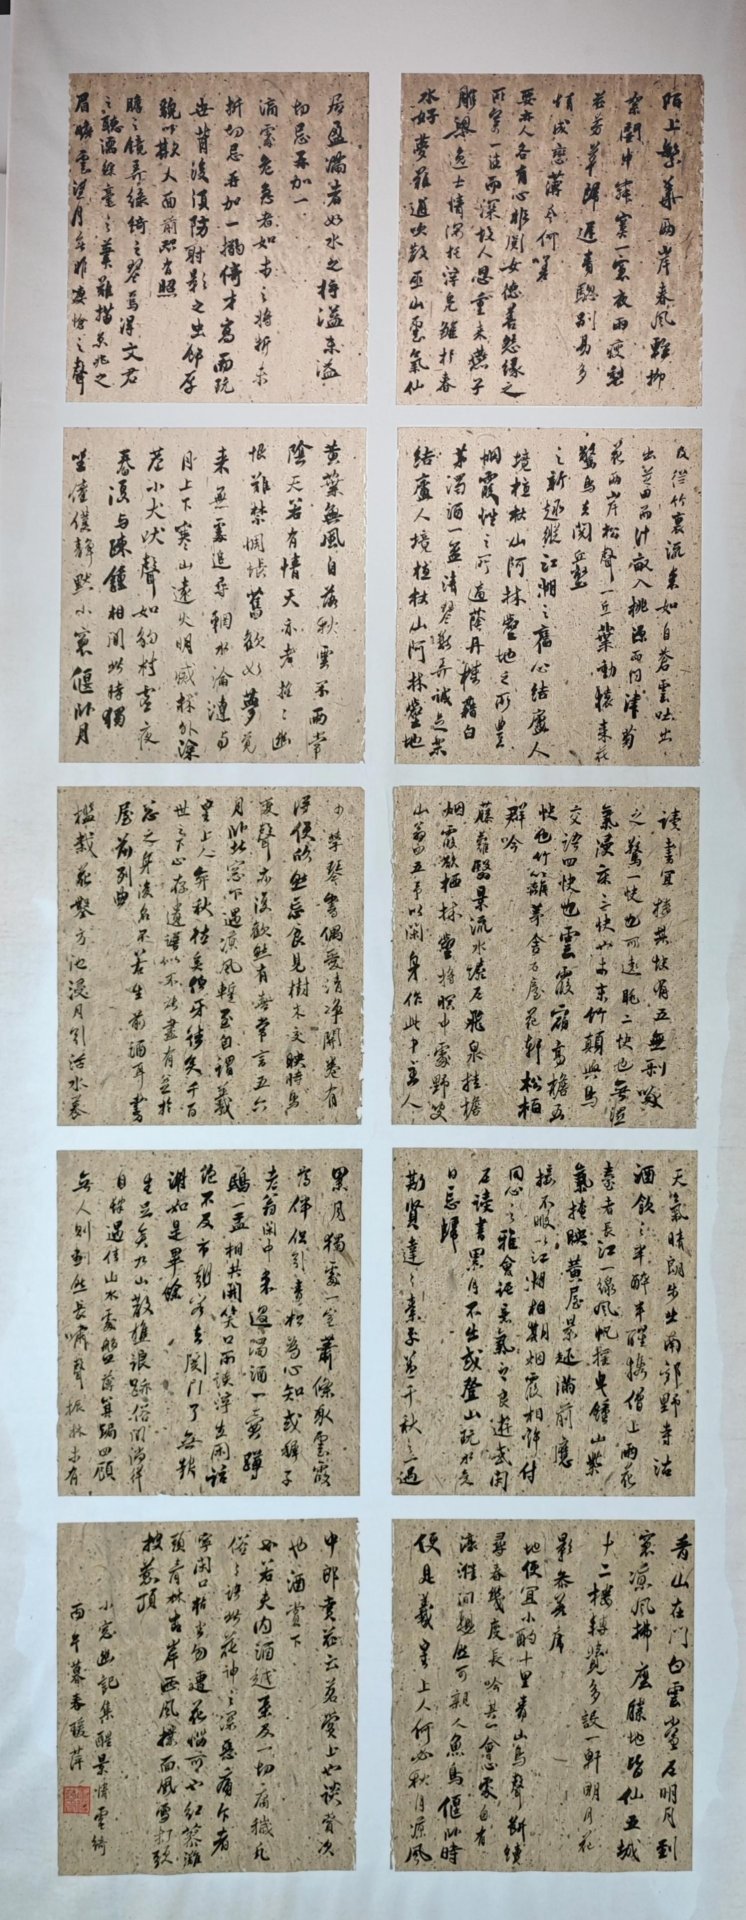 陌上繁華兩岸春風輕柳
絮閨中寂寞一窗夜雨瘦梨
花芳草歸遲青驄別易多
情成戀薄命何嗟
要亦人各有心非關女德善怨緣之
所寄一往而深故人恩重來燕子
雕梁逸士情深托浮鳧雛於春
水好夢難通吹散巫山雲氣仙
居盈滿者如水之將溢未溢
切忌再加一
滴處危急者如木之將折未
折切忌再加一搦倚才高而玩
世背後須防射影之虫飾厚
貌以欺人面前恐有照
膽之鏡弄綠綺之琴焉得文君
之聽濡彩毫之筆難描京兆之
眉瞻雲望月無非淒愴之聲
及從竹裏流來如自蒼雲吐出
出芝田而計畝入桃源而問津菊
花兩岸松聲一丘葉動猿來花
驚鳥去閱丘壑
之新趣縱江湖之舊心結廬人
境植杖山阿林壑地之所豐
烟霞性之所適蔭丹桂藉白
茅濁酒一盃清琴數弄誠足樂
結廬人境植杖山阿林壑地
黃葉無風自落秋雲不雨常
陰天若有情天亦老搖搖幽
恨難禁惆悵舊歡如夢覺
來無處追尋輞水淪漣與
月上下寒山遠火明滅林外深
巷小犬吠聲如豹村墟夜
舂復與疎鐘相間此時獨
坐僮僕靜默小窗偃卧月
讀書宜樓其快有五無剝啄
之驚一快也可遠眺二快也無溼
氣浸床三快也木末竹顛與鳥
交語四快也雲霞宿高檐五
快也竹籬茅舍石屋花軒松柏
群吟
藤蘿翳景流水繞戶飛泉挂檐
烟霞欲栖林壑將暝中處野叟
山翁四五予以閑身作此中主人
少學琴書偶愛清淨開卷有
得便欣然忘食見樹木交映時鳥
變聲亦復歡然有喜常言五六
月卧北窗下遇涼風暫至自謂羲
皇上人弈秋往矣伯牙往矣千百
世之下止存遺譜似不能盡有益於
之身後名不若生前酒耳書
屋前列曲
檻栽花鑿方池浸月引活水養
天氣晴朗步出南郊野寺沽
酒飲之半醉半醒携僧上雨花
臺看長江一線風帆搖曳鍾山紫
氣掩映黃屋景趣滿前應
接不暇以江湖相期烟霞相許付
同心之雅會託意氣之良遊或閉
戶讀書累月不出或登山玩水竟
日忘歸
斯賢達之素交蓋千秋之一遇
累月獨處一室蕭條取雲霞
為伴侶引青松為心知或稚子
老翁閑中來過濁酒一壺蹲
鴟一盂相共開笑口而談浮生閑話
絕不及市朝客去關門了無報
謝如是畢餘
生足矣乃山散樵浪跡俗間徜徉
自肆遇佳山水處盤礴箕踞四顧
無人則劃然長嘯聲振林木有
青山在門白雲當戶明月到
窗涼風拂座勝地皆仙五城
十二樓轉覺多設一軒明月花
影參差席
地便宜小酌十里青山鳥聲斷續
尋春幾度長吟其會心處自有
濠濮間想然可親人魚鳥偃卧時
便是羲皇上人何必秋月涼風
中郎賞花云茗賞上也談賞次
也酒賞下
也若夫內酒越茶及一切庸穢凡
俗之語此花神之深惡痛斥者
寧閉口枯坐勿遭花惱可也紅蓼灘
頭青林古岸西風撲面風雪打頭
披蓑頂
小窗幽記集醒景情雲綺
丙午暮春暖萍